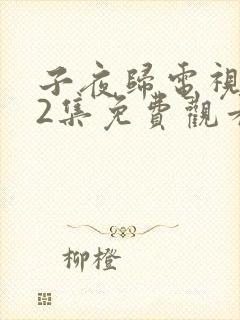 子夜歸電視
2集免費觀看
柳橙